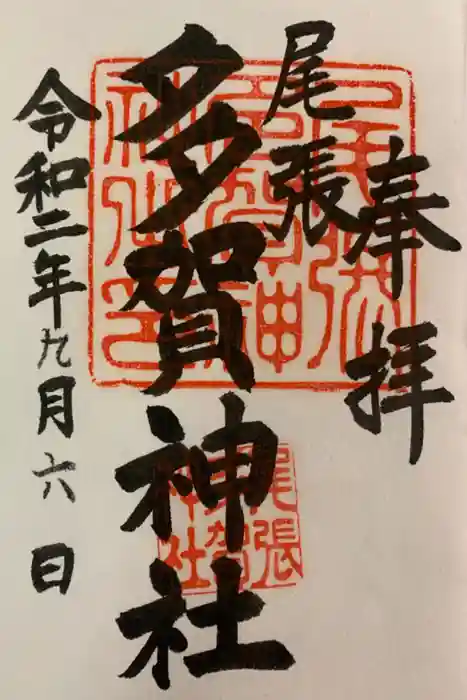 奉拝
尾張
多賀神社
令和二年九月六日
尾張
多賀神
社之印
尾張
多賀
神社